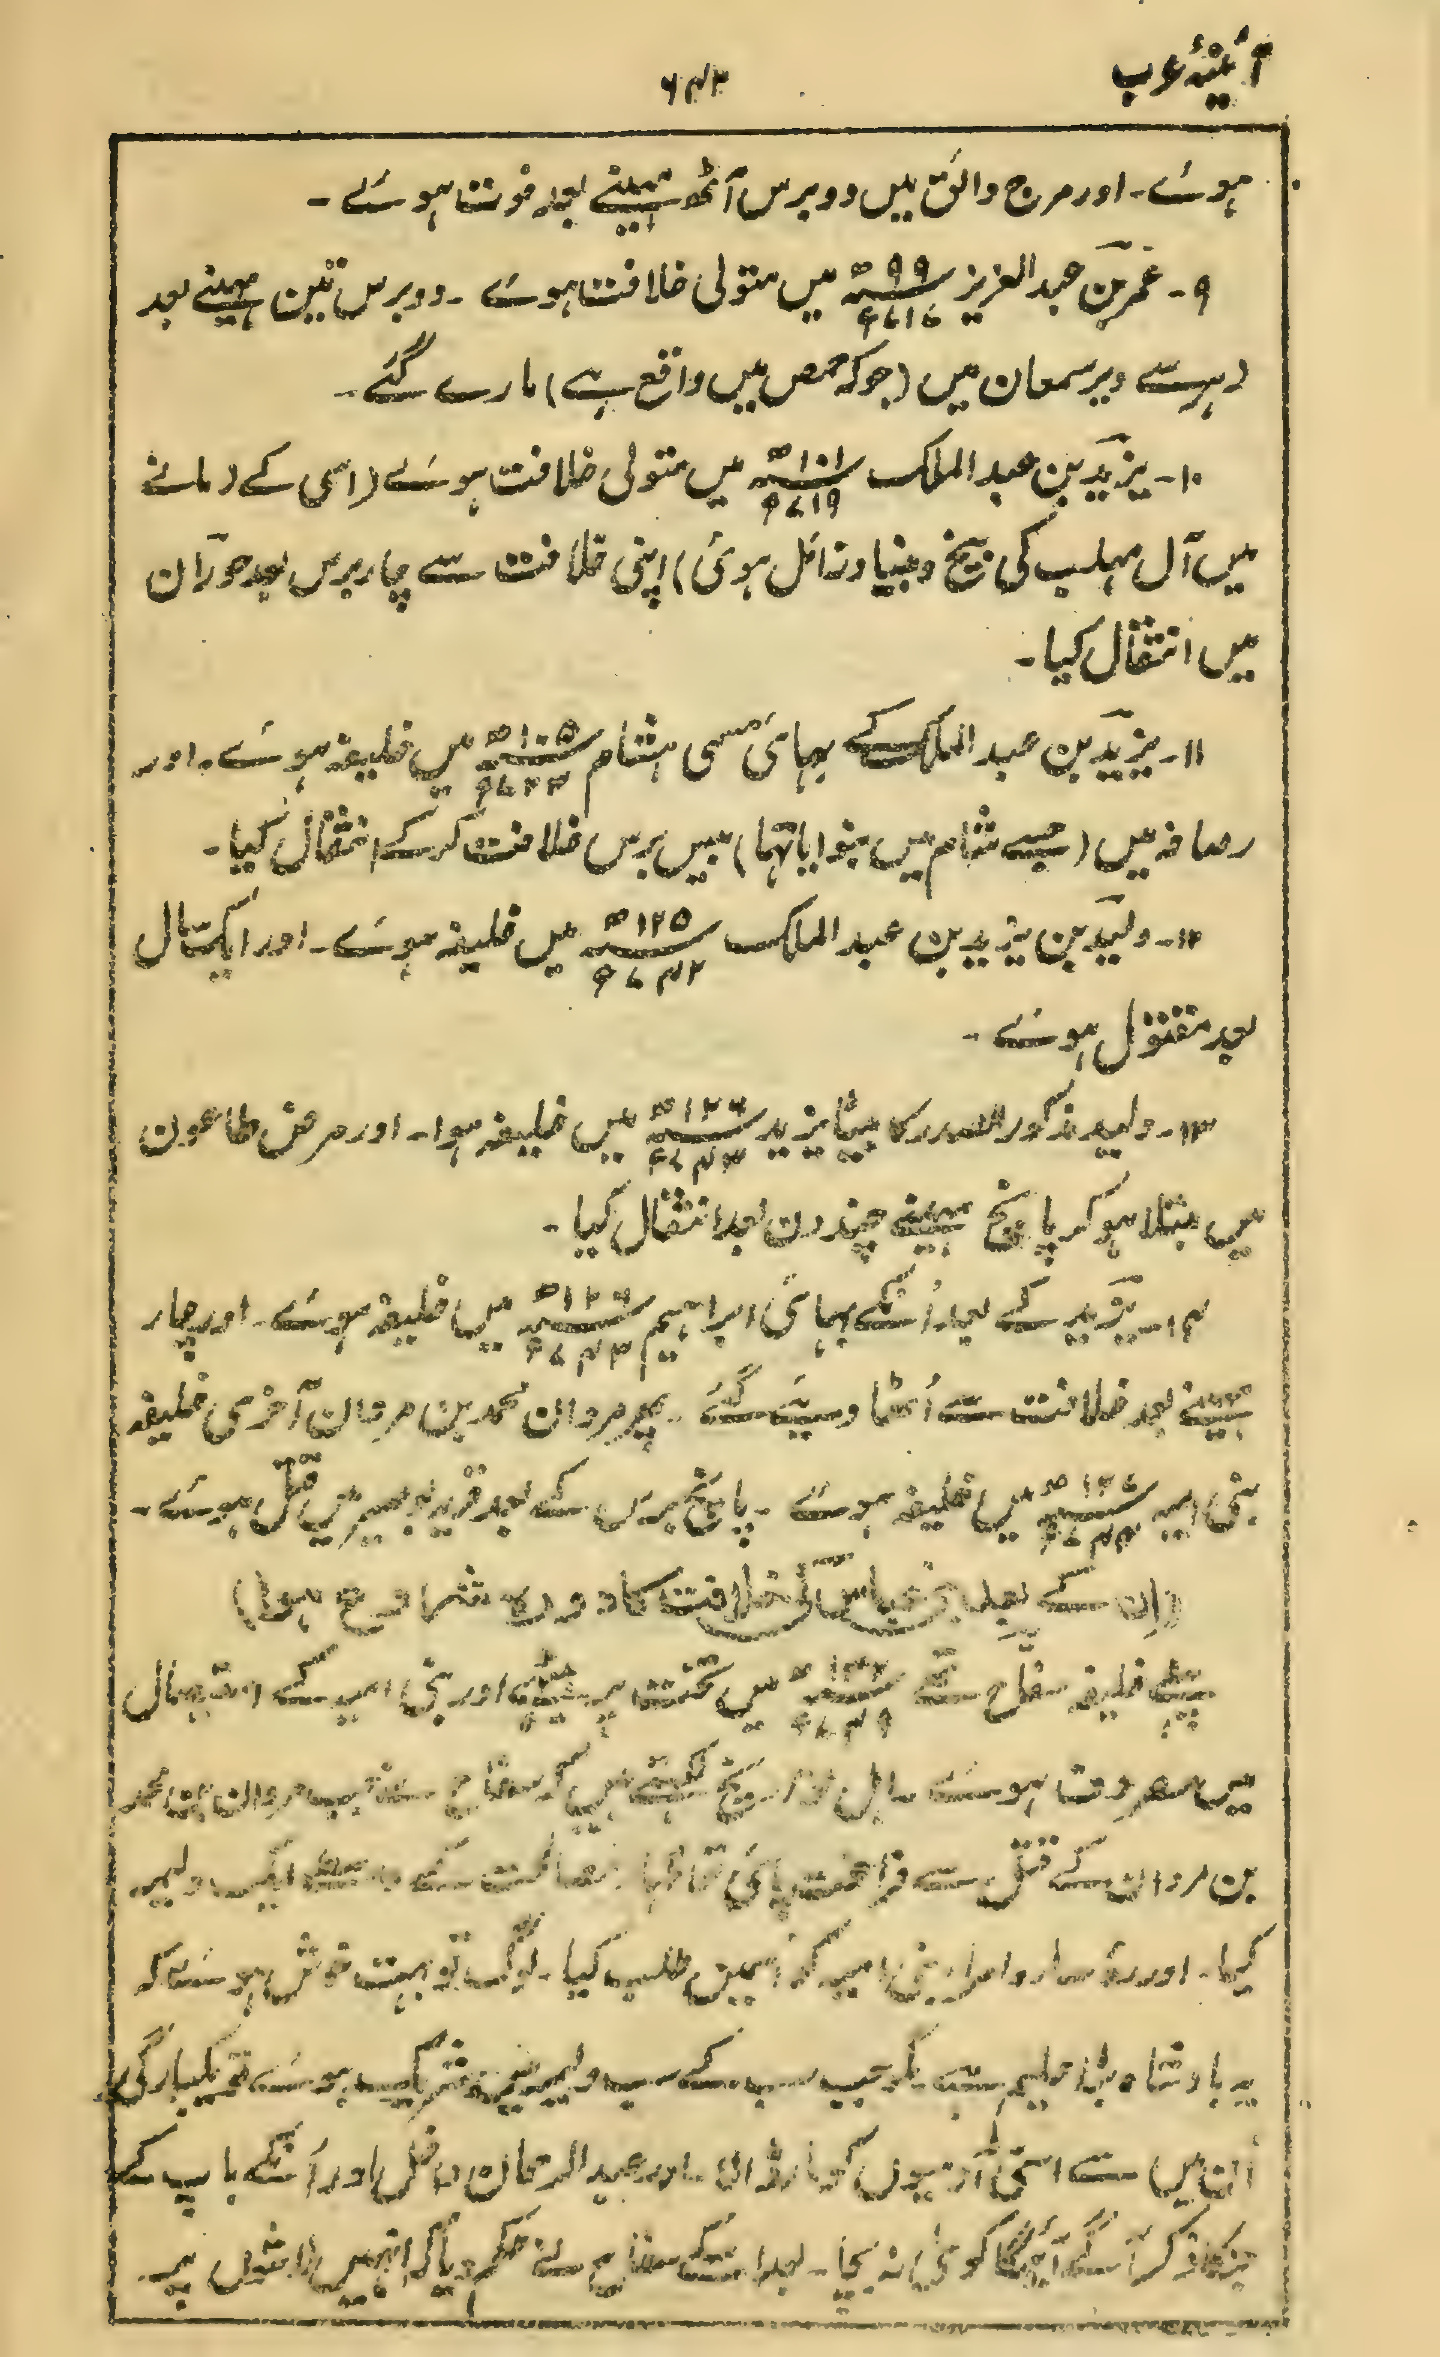 آئینۂ عرب
۶۴۳
ہوئے۔ اور مرج دابق میں دو برس آٹھ مہینے بعد فوت ہوئے۔
۹۔ عمر بن عبد العزیز ۹۹ھ ۷۱۷ء میں متولی خلافت ہوئے۔ دو برس تین مہینے بعد
زہر سے دیر سمعان میں (جو کہ حمص میں واقع ہے) مارے گئے۔
۱۰۔ یزید بن عبد الملک ۱۰۱ھ ۷۱۹ء میں متولی خلافت ہوئے (اسی کے زمانے
میں آل مہلب کی بیخ و بنیاد زائل ہوئی) اپنی خلافت سے چار برس بعد حوران
میں انتقال کیا۔
۱۱۔ یزید بن عبد الملک کے بھائی مسمی ہشام ۱۰۵ھ ۷۲۳ء میں خلیفہ ہوئے۔ اور
رصافہ میں (جسے شام میں بنوایا تھا) بیس برس خلافت کر کے انتقال کیا۔
۱۲۔ ولید بن یزید بن عبد الملک ۱۲۵ھ ۷۴۲ء میں خلیفہ ہوئے۔ اور ایک سال
بعد مقتول ہوئے۔
۱۳۔ ولید مذکور الصدر کا بیٹا یزید ۱۲۶ھ ۷۴۳ء میں خلیفہ ہوا۔ اور مرض طاعون
میں مبتلا ہو کر پانچ مہینے چند دن بعد انتقال کیا۔
۱۴۔ یزید کے بعد اُنکے بھائی ابراہیم ۱۲۶ھ ۷۴۳ء میں خلیفہ ہوئے۔ اور چار
مہینے بعد خلافت سے اُٹھا دیئے گئے۔ پھر مروان محمد بن مروان آخری خلیفہ
بنی امیہ ۱۲۷ھ ۷۴۴ء میں خلیفہ ہوئے۔ پانچ برس کے بعد قریہ بوصیر میں قتل ہوئے۔
(ان کے بعد بنی عباس کی خلافت کا دورہ شروع ہوا)
پہلے خلیفہ سفاح تھے ۱۳۲ھ ۷۴۹ء میں تخت پر بیٹھے اور بنی امیہ کے استیصال
میں مصروف ہوئے۔ اہل تواریخ لکھتے ہیں کہ سفاح نے جب مروان بن محمد
بن مروان کے قتل سے فراغت پائی تو اظہار مصالحت کے واسطے ایک ولیمہ
کیا۔ اور رؤسا و امراء بنی امیہ کو اُسمیں طلب کیا۔ لوگ تو بہت خوش ہوئے کہ
یہ بادشاہ بڑا حلیم ہے۔ مگر جب سب کے سب ولیمہ میں شریک ہوئے تو یکبارگی
اُن میں سے اسّی آدمیوں کو مار ڈالا۔ اور عبد الرحمان داخل اور اُنکے باپ کے
جنکا ذکر آگے آئیگا کوئی نہ بچا۔ بعد اسکے سفاح نے حکم دیا کہ انہیں لاشوں پر